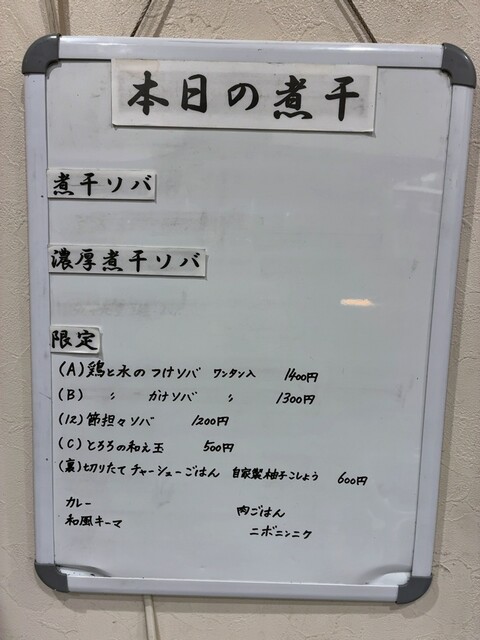 本日の煮干
煮干ソバ
濃厚煮干ソバ
限定
(A) 鶏と水のつけソバ ワンタン入 1400円
(B) 〃 かけソバ 〃 1300円
(12) 節担々ソバ 1200円
(C) とろろの和え玉 500円
(裏) 切りたてチャーシューごはん 自家製柚子こしょう 600円
カレー
和風キーマ
肉ごはん
ニボニンニク